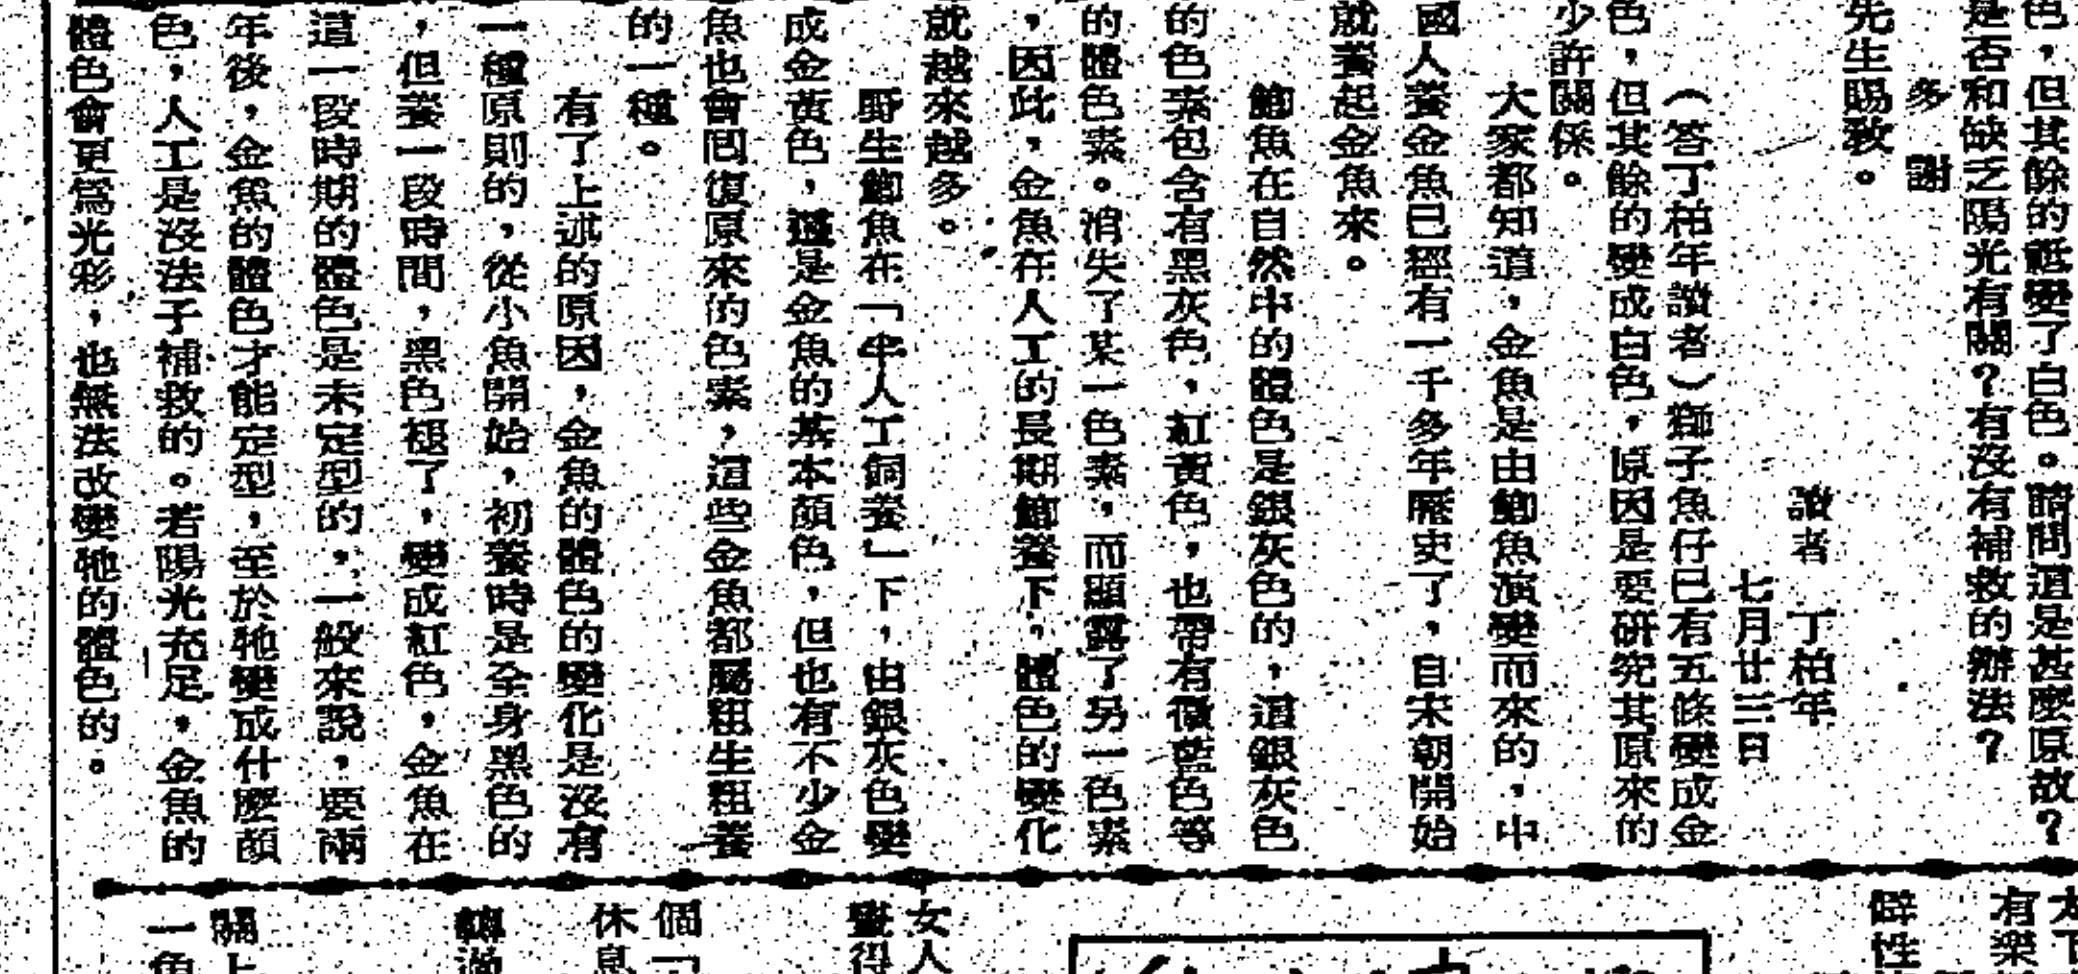 色，但其餘的祗變了白色。請問這是甚麼原故？
是否和缺乏陽光有關？有沒有補救的辦法？
多謝
先生賜敎。
讀者　丁柏年
七月廿三日
（答丁柏年讀者）獅子魚仔已有五條變成金
色，但其餘的變成白色，原因是要研究其原來的
少許關係。
大家都知道，金魚是由鯽魚演變而來的，中
國人養金魚已經有一千多年歷史了，自宋朝開始
就養起金魚來。
鯽魚在自然中的體色是銀灰色的，這銀灰色
的色素包含有黑灰色，紅黃色，也帶有微藍色等
的體色素。消失了某一色素，而顯露了另一色素
，因此，金魚在人工的長期飼養下，體色的變化
就越來越多。
野生鯽魚在「半人工飼養」下，由銀灰色變
成金黃色，這是金魚的基本顏色，但也有不少金
魚也會回復原來的色素，這些金魚都屬粗生粗養
的一種。
有了上述的原因，金魚的體色的變化是沒有
一種原則的，從小魚開始，初養時是全身黑色的
，但養一段時間，黑色褪了，變成紅色，金魚在
這一段時期的體色是未定型的，一般來說，要兩
年後，金魚的體色才能定型，至於牠變成什麼顏
色，人工是沒法子補救的。若陽光充足，金魚的
體色會更爲光彩，也無法改變牠的體色的。
太下
有樂
僻性
女人
個「
休息
關上
一魚